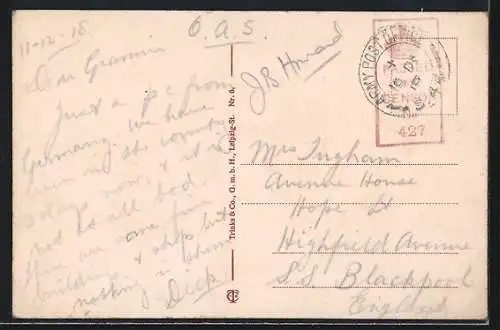 11-12-18
O.A.S.
Dear Grannie
Just a pc from
Germany. We have
been in the country
days now & it is
not at all bad.
There are some fine
buildings & shops but
nothing in them
Dick.
Trinks & Co., G. m. b. H., Leipzig-St. Nr. 6.
JB Howard
ARMY POST OFFICE
427
Mrs Ingham
Avenue House
Hope St
Highfield Avenue
S.S. Blackpool
England